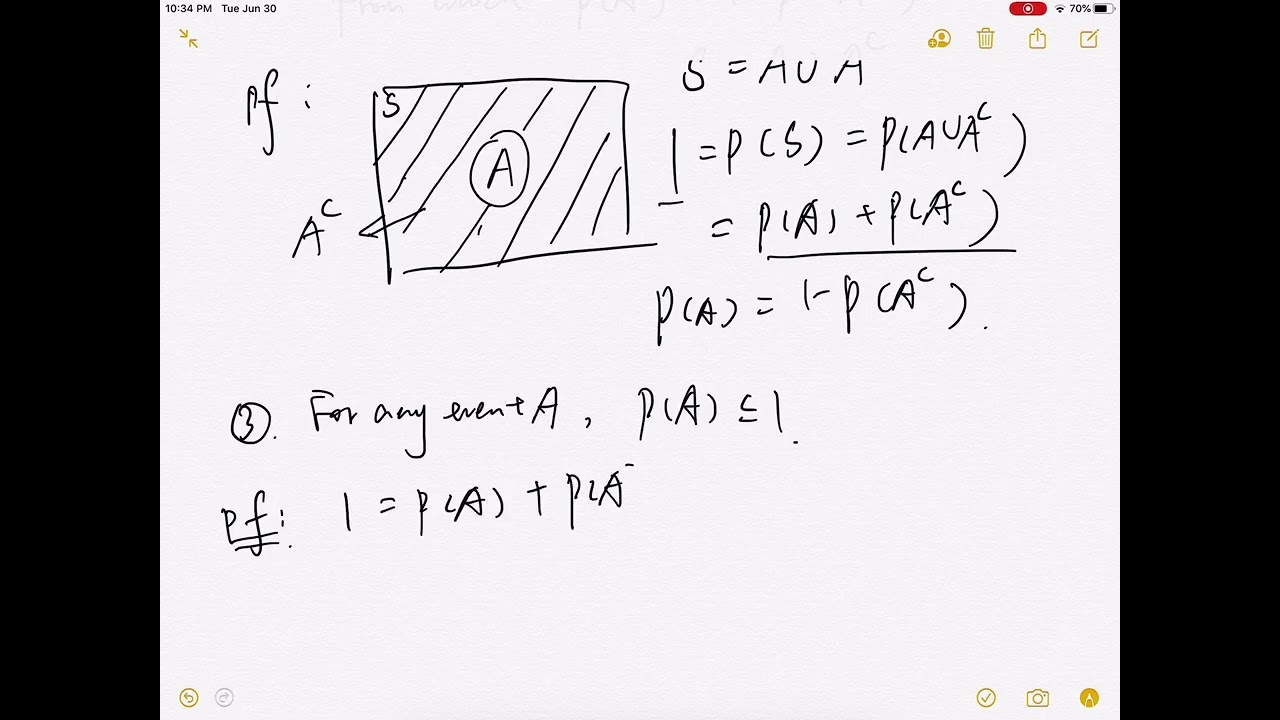 10:34 PM Tue Jun 30
70%
pf :
S
A
A^c
S = A ∪ A
1 = P(S) = P(A∪A^c)
= P(A) + P(A^c)
P(A) = 1 - P(A^c).
③. For any event A, P(A) ≤ 1.
pf: 1 = P(A) + P(A